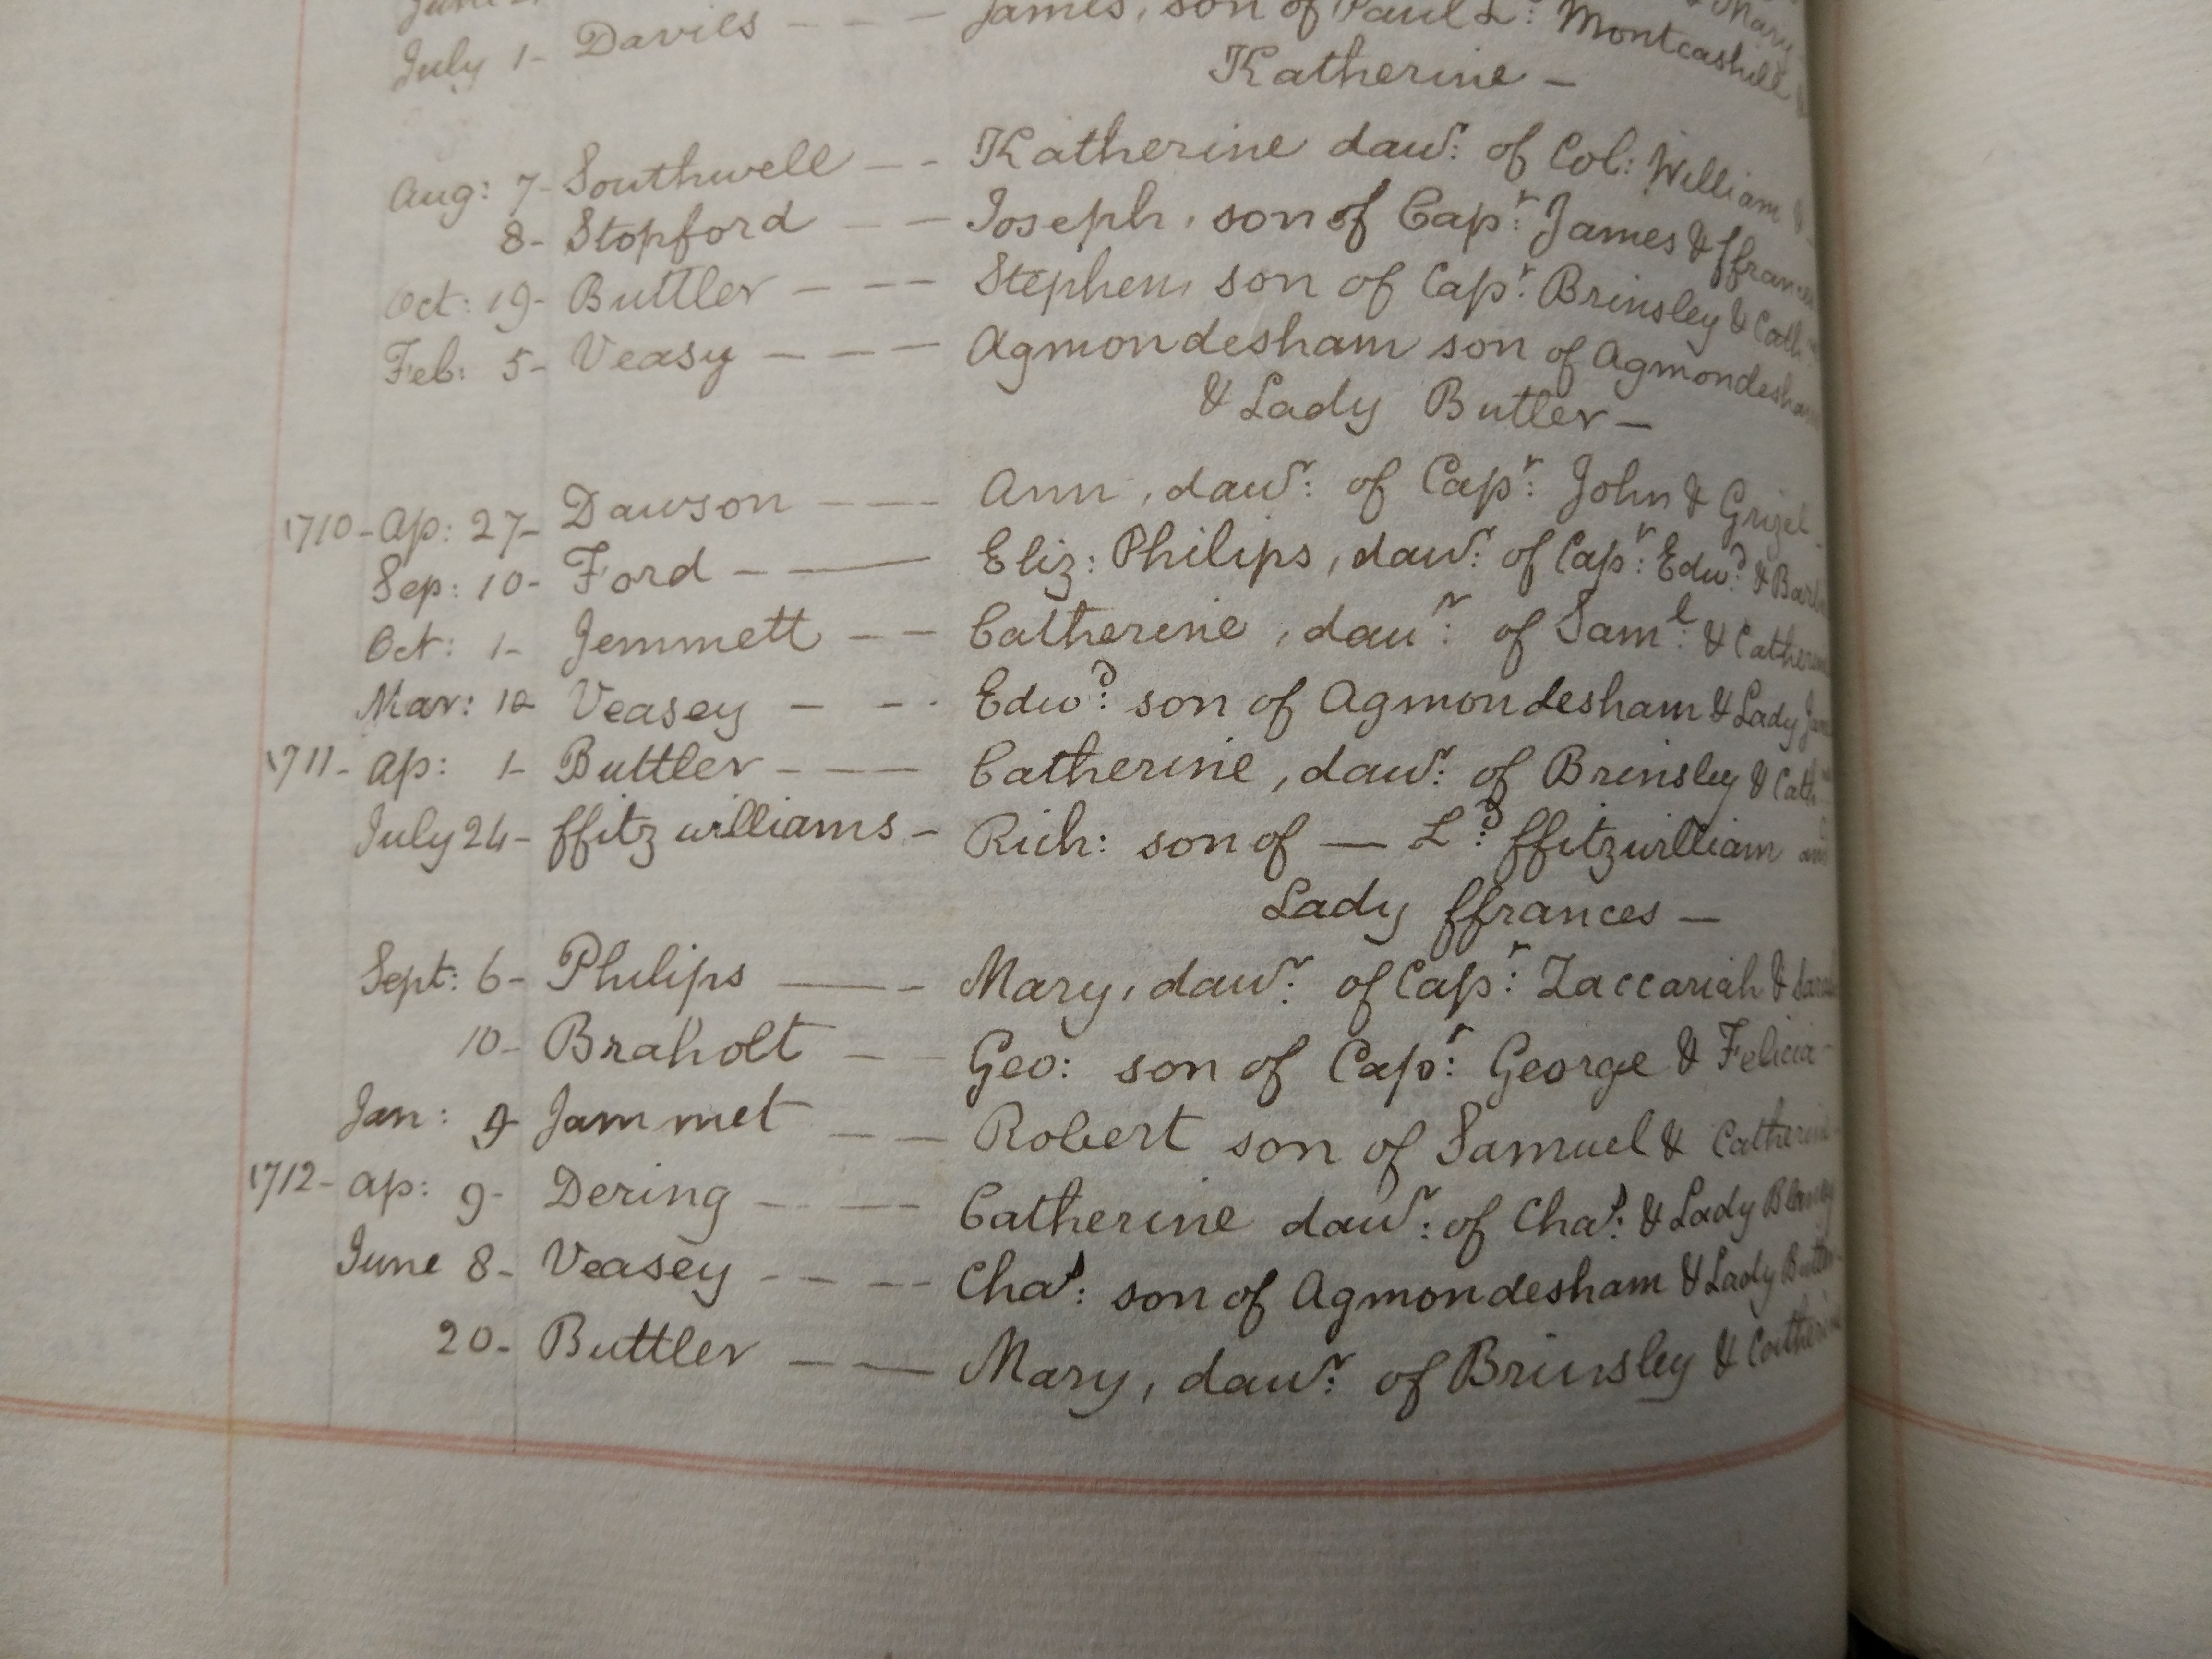 July 1- Davies - - - James, son of Paul L: Montcashell
Katherine -
Aug: 7- Southwell - - Katherine dawr: of Col: William &
8- Stopford - - Joseph, son of Capr: James & ffrances
Oct: 19- Buttler - - - Stephen, son of Capr: Brinsley & Cath
Feb: 5- Veasy - - - Agmondesham son of Agmondesham
& Lady Butler -
1710- Ap: 27- Dawson - - - Ann, dawr: of Capr: John & Grizel
Sep: 10- Ford - - Eliz: Philips, dawr: of Capr: Edwd: & Barb
Oct: 1- Jemmett - - Catherine, daur: of Saml: & Catherine
Mar: 10- Veasey - - - Edwd: son of Agmondesham & Lady
1711- Ap: 1- Buttler - - - Catherine, dawr: of Brinsley & Cath
July 24- ffitzwilliams - Rich: son of — Ld: ffitzwilliam and
Lady ffrances -
Sept: 6- Philips - - Mary, dawr: of Capr: Zaccariah & Sarah
10- Braholt - - Geo: son of Capr: George & Felicia -
Jan: 9- Jammet - - Robert son of Samuel & Catherine
1712- Ap: 9- Dering - - - Catherine dawr: of Chas: & Lady Blaney
June 8- Veasey - - - - Chas: son of Agmondesham & Lady Butler
20- Buttler - - Mary, dawr: of Brinsley & Catherine